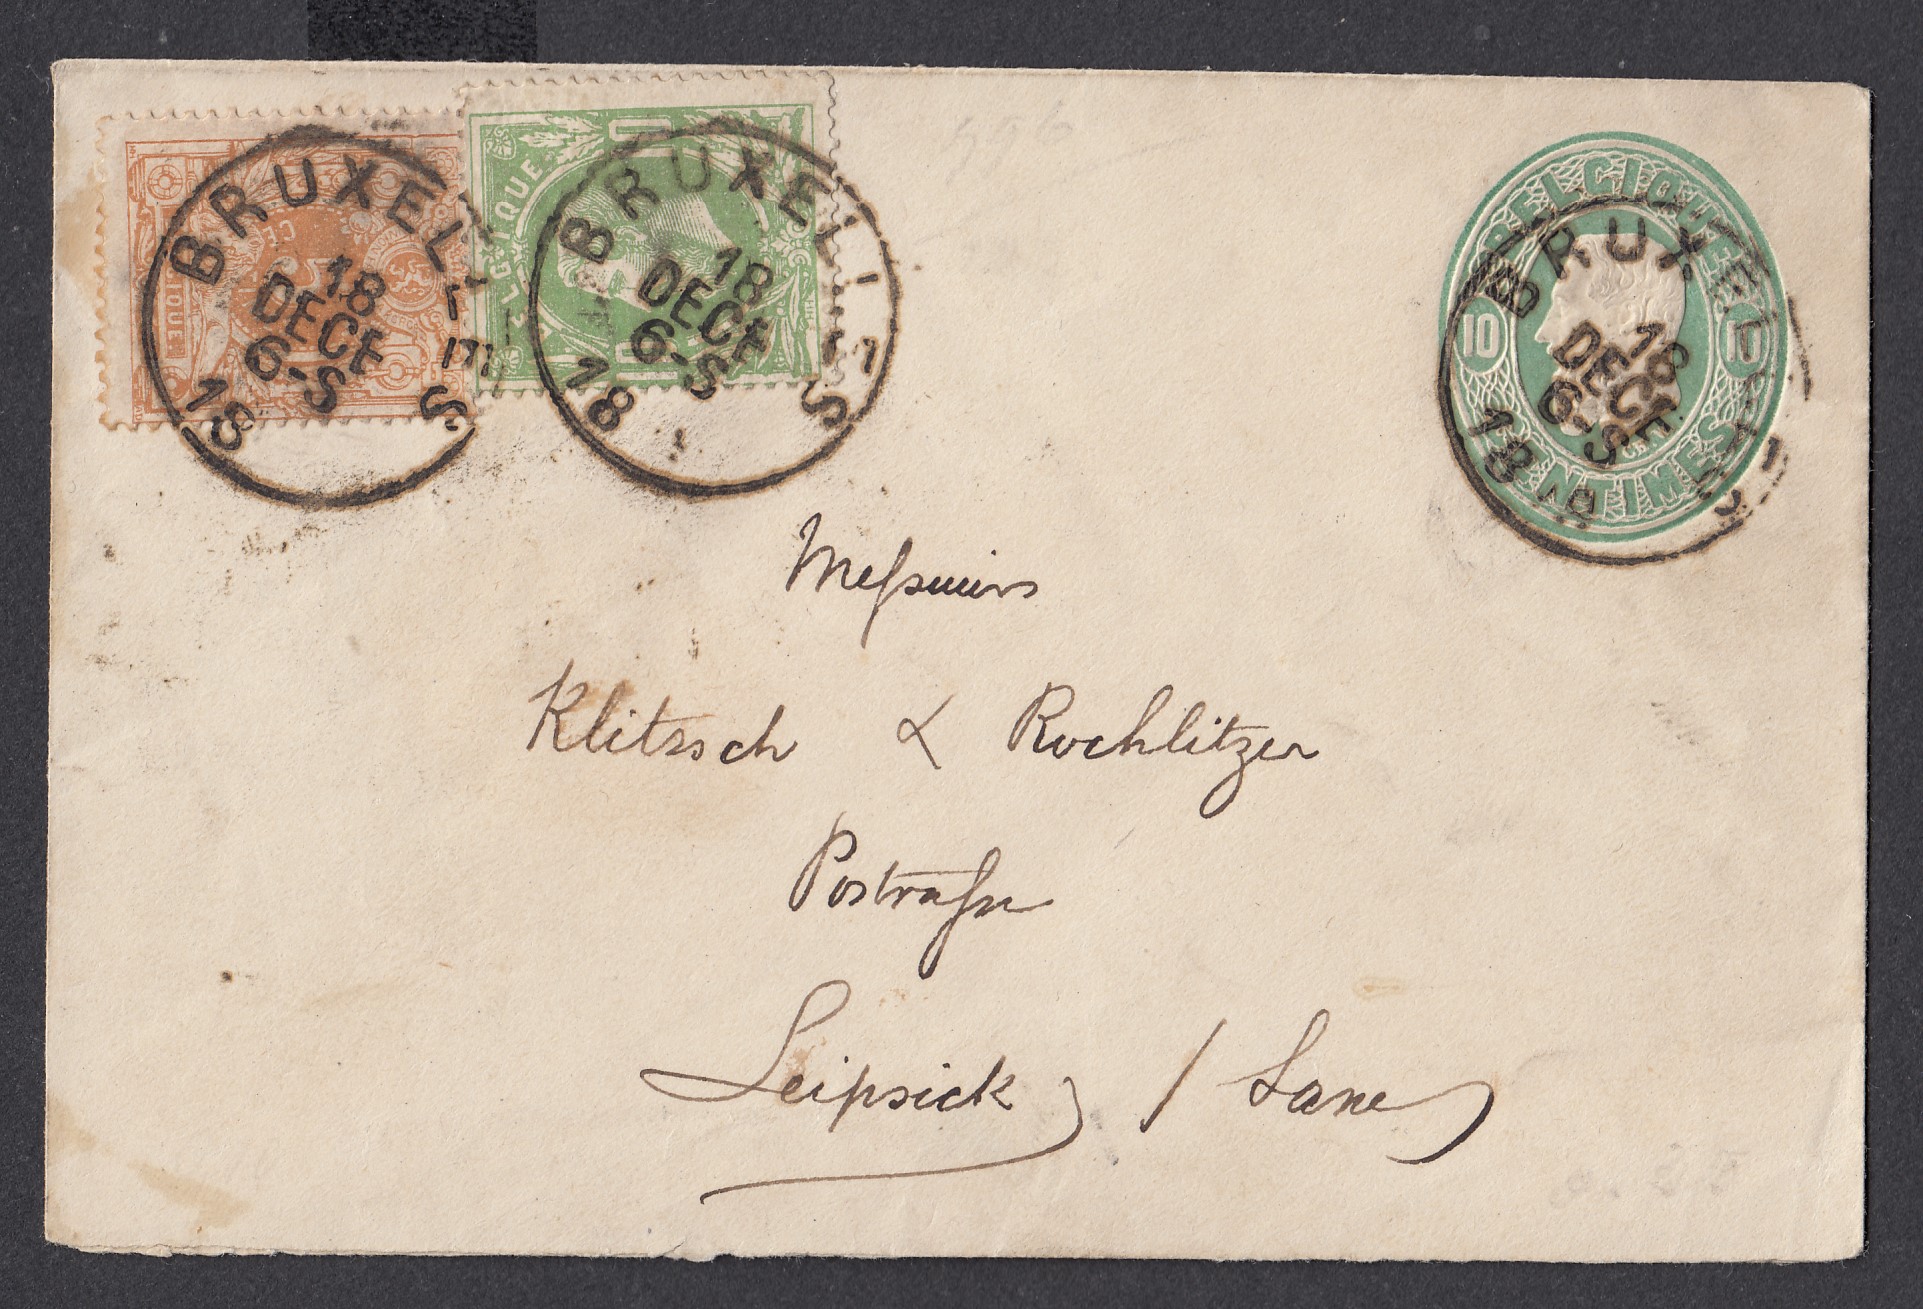 BRUXELLES
18 DECE
6-S
18
BELGIQUE
BRUXELLES
18 DECE
6-S
18
BELGIQUE
10 10
CENTIMES
BRUXELLES
18 DECE
6-S
18
Messieurs
Klitzsch & Rochlitzer
Leipsick /